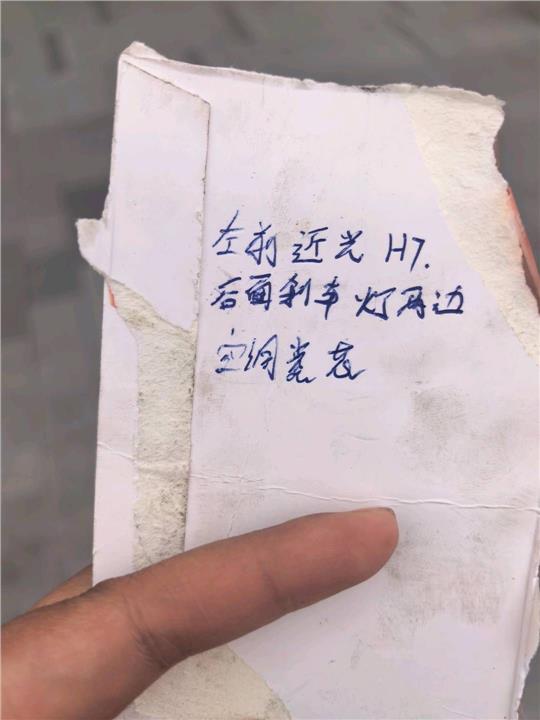 左前近光 H7.
后面刹车灯两边
空调